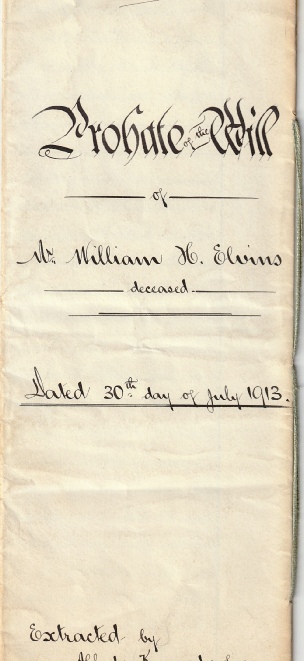 Probate of the Will
of
Mr. William H. Elvins
deceased.
Dated 30th day of July 1913.
Extracted by